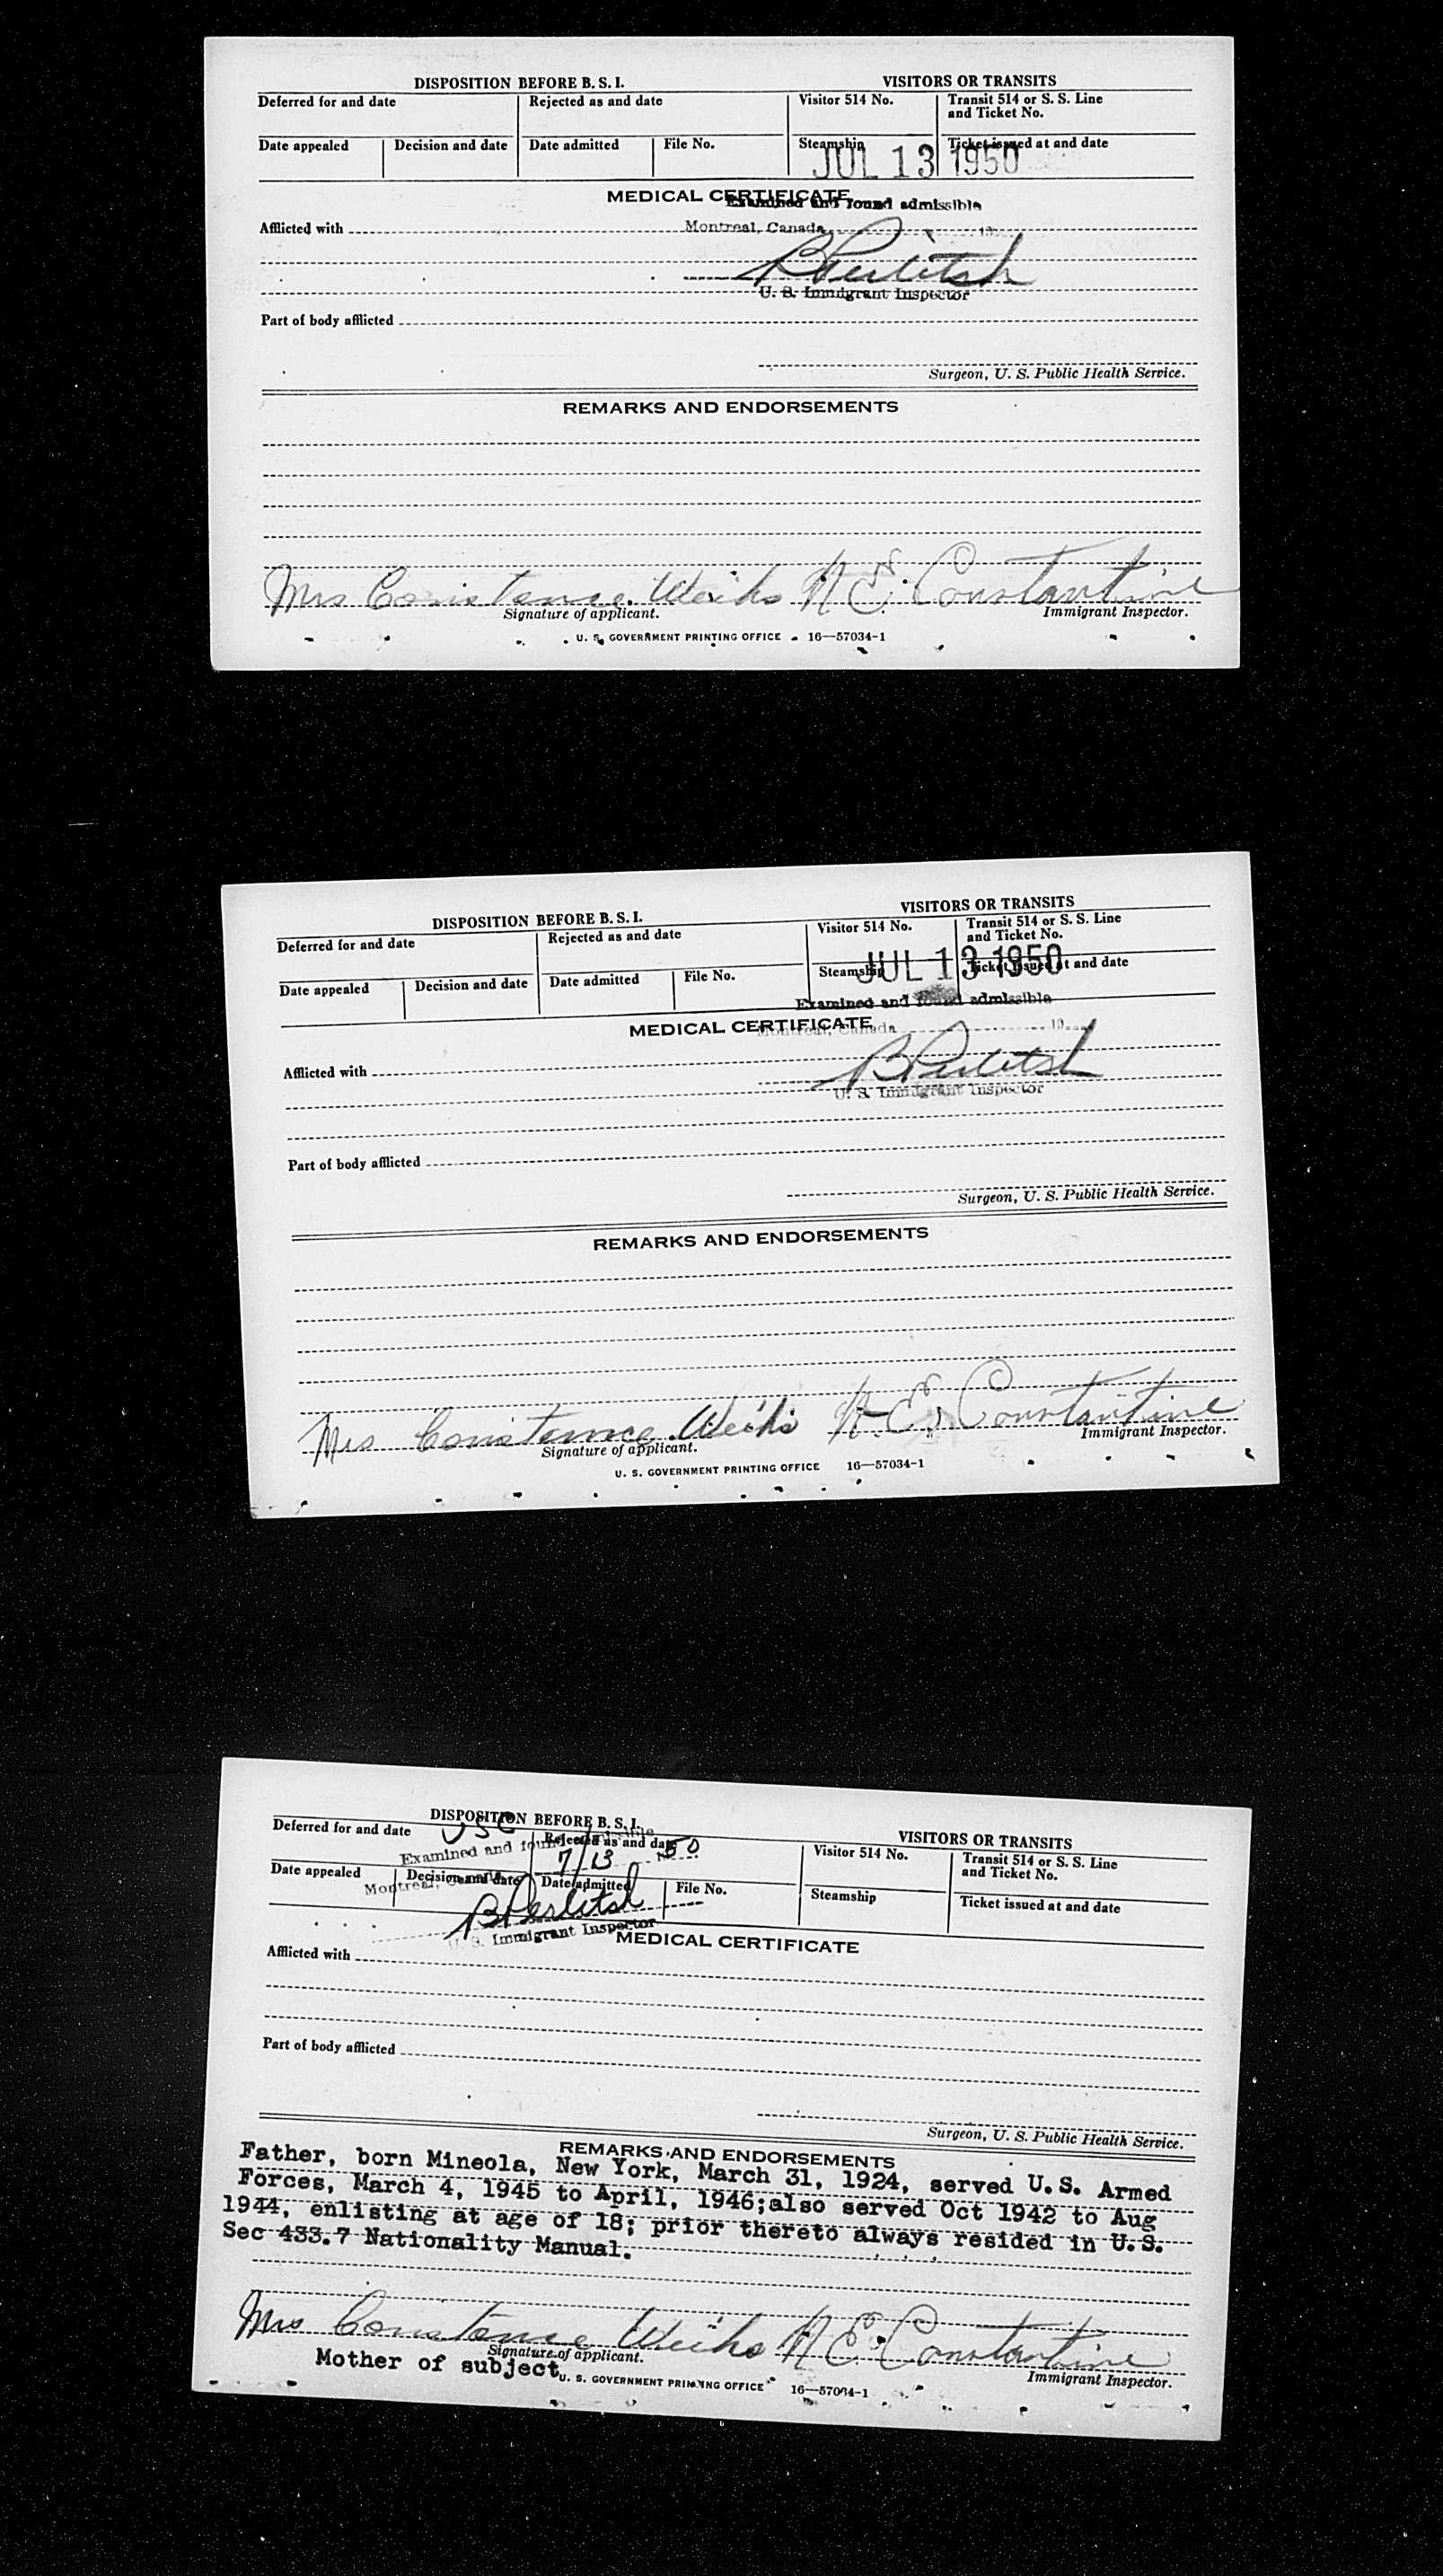 DISPOSITION BEFORE B. S. I. VISITORS OR TRANSITS
Deferred for and date Rejected as and date Visitor 514 No. Transit 514 or S. S. Line
and Ticket No.
Date appealed Decision and date Date admitted File No. Steamship Ticket issued at and date
JUL 13 1950
MEDICAL CERTIFICATE
Examined and found admissible
Afflicted with Montreal, Canada, 19
B Perlitsh
U. S. Immigrant Inspector
Part of body afflicted
Surgeon, U. S. Public Health Service.
REMARKS AND ENDORSEMENTS
Mrs Constance Weihs N. E. Constantine
Signature of applicant. Immigrant Inspector.
U. S. GOVERNMENT PRINTING OFFICE 16—57034-1
DISPOSITION BEFORE B. S. I. VISITORS OR TRANSITS
Deferred for and date Rejected as and date Visitor 514 No. Transit 514 or S. S. Line
and Ticket No.
Date appealed Decision and date Date admitted File No. Steamship Ticket issued at and date
JUL 13 1950
Examined and found admissible
MEDICAL CERTIFICATE
Montreal, Canada 19
Afflicted with B Perlitsh
U. S. Immigrant Inspector
Part of body afflicted
Surgeon, U. S. Public Health Service.
REMARKS AND ENDORSEMENTS
Mrs Constance Weihs N. E. Constantine
Signature of applicant. Immigrant Inspector.
U. S. GOVERNMENT PRINTING OFFICE 16—57034-1
DISPOSITION BEFORE B. S. I. VISITORS OR TRANSITS
USC
Deferred for and date Rejected as and date Visitor 514 No. Transit 514 or S. S. Line
and Ticket No.
Examined and found admissible
7/13 50
Date appealed Decision and date Date admitted File No. Steamship Ticket issued at and date
Montreal, Canada
B Perlitsh
U. S. Immigrant Inspector
MEDICAL CERTIFICATE
Afflicted with
Part of body afflicted
Surgeon, U. S. Public Health Service.
REMARKS AND ENDORSEMENTS
Father, born Mineola, New York, March 31, 1924, served U.S. Armed
Forces, March 4, 1945 to April, 1946;also served Oct 1942 to Aug
1944, enlisting at age of 18; prior thereto always resided in U.S.
Sec 433.7 Nationality Manual.
Mrs Constance Weihs N. E. Constantine
Signature of applicant. Immigrant Inspector.
Mother of subject
U. S. GOVERNMENT PRINTING OFFICE 16—57034-1